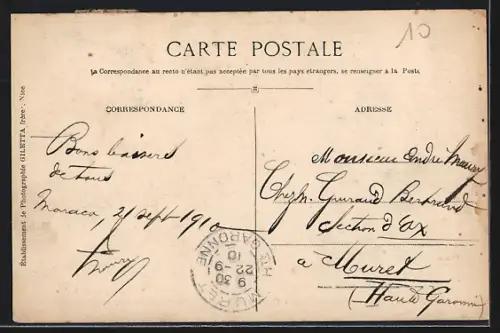 10
CARTE POSTALE
La Correspondance au recto n'étant pas acceptée par tous les pays étrangers, se renseigner à la Poste
CORRESPONDANCE
ADRESSE
Établissement de Photographie GILETTA frère: Nice
Bons baisers
de tous
Monaco, 21 sept 1910
Monsieur André
Chez M. Bertrand
Section d'Ax
à Muret
(Haute Garonne)
MURET
Hte GARONNE
9 30
22 - 9
10